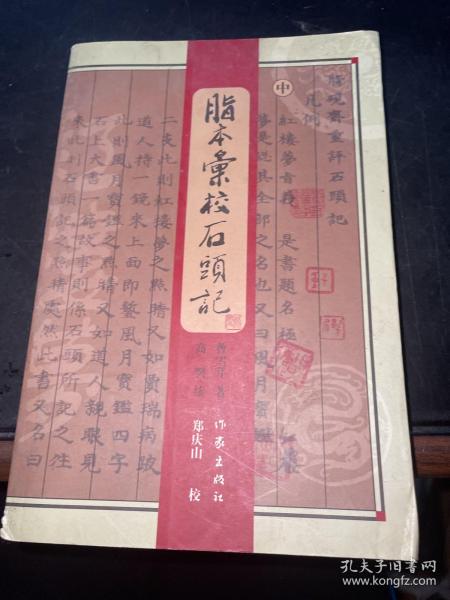 脂本彙校石頭記
曹雪芹 著
高鶚 续
郑庆山 校
作家出版社
中
脂硯齋重評石頭記
凡例
紅樓夢旨義 是書題名極
夢是總其全部之名也又曰風月寶鑑
二支此則紅樓夢之點睛又如賈瑞病跛
道人持一鏡來上面即鏨風月寶鑑四字
此則風月寶鑑之點睛又如道人親眼見
石上大書一篇故事則係石頭所記之往
來此則石頭記之點睛處然此書又名曰
孔夫子旧书网
www.kongfz.com